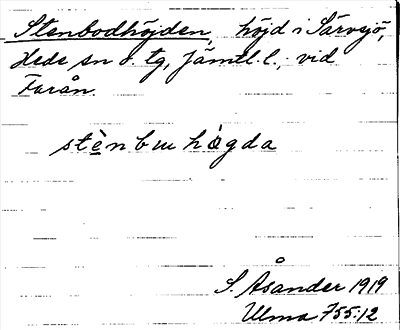 Stenbodhöjden, höjd i Särvsjö,
Hede sn o. tg, Jämtl. l., vid
Farån.
stènbuhögda
S. Åsander 1919
Ulma 755:12